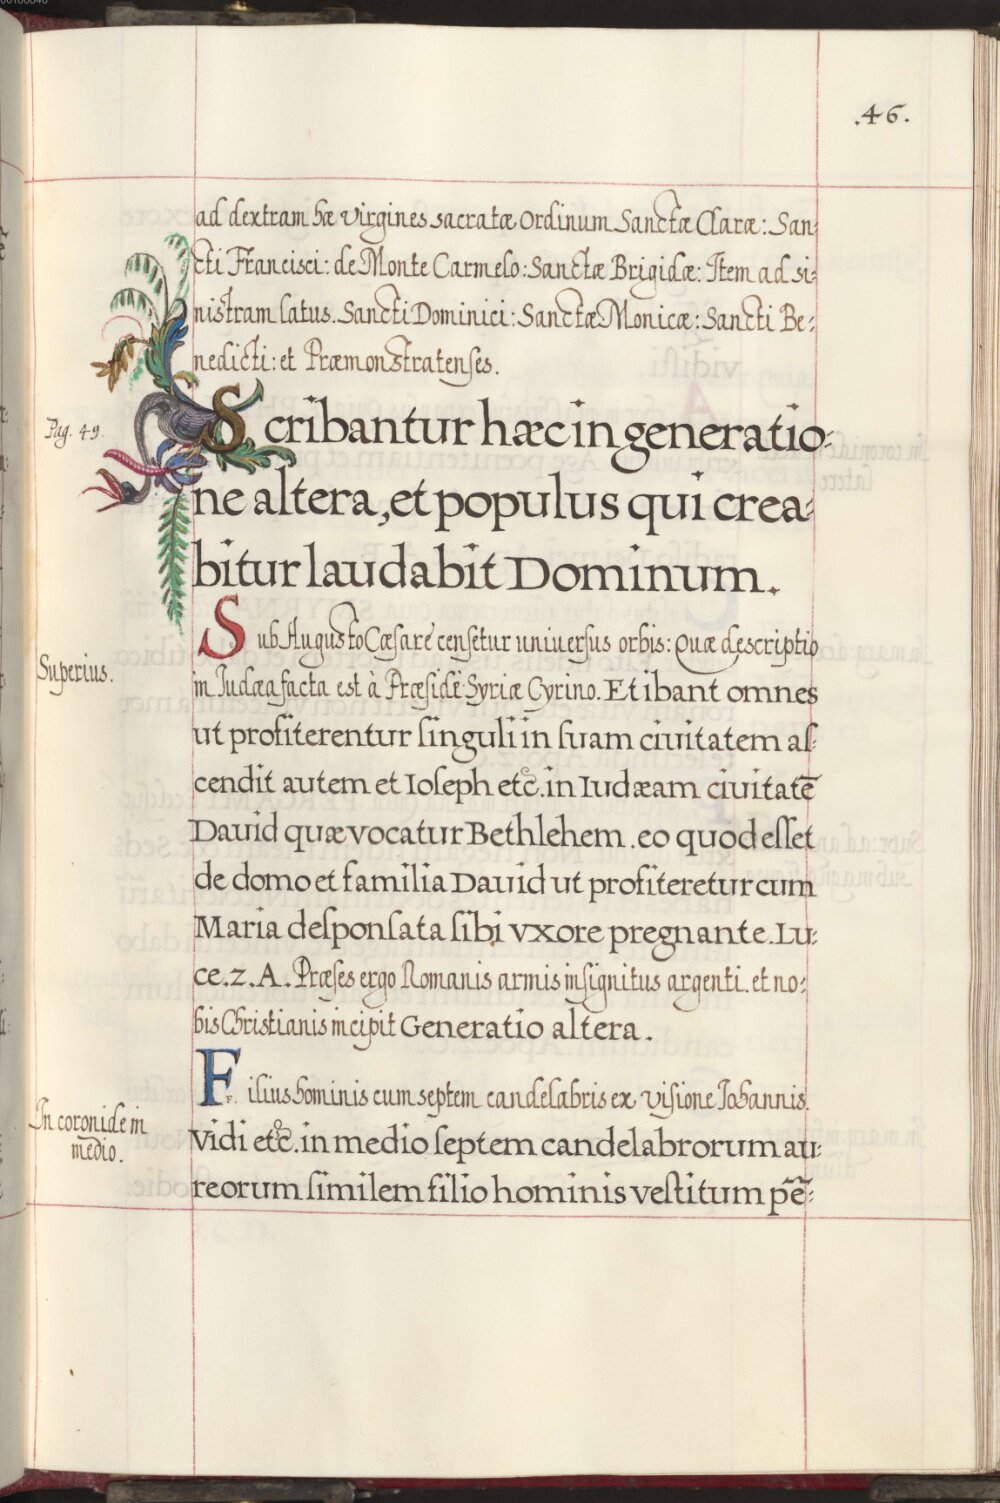 .46.
ad dextram hæ virgines sacratæ Ordinum Sanctæ Claræ: San-
cti Francisci: de Monte Carmelo: Sanctæ Brigidæ: Item ad si-
nistram latus. Sancti Dominici: Sanctæ Monicæ: Sancti Be-
nedicti: et Præmonstratenses.
Pag. 49.
Scribantur hæc in generatio-
ne altera, et populus qui crea-
bitur laudabit Dominum.
Sub Augusto Cæsare censetur uniuersus orbis: quæ descriptio
Superius.
in Iudæa facta est à Præside Syriæ Cyrino. Et ibant omnes
ut profiterentur singuli in suam ciuitatem as-
cendit autem et Ioseph etc. in Iudæam ciuitatē
Dauid quæ vocatur Bethlehem. eo quod esset
de domo et familia Dauid ut profiteretur cum
Maria desponsata sibi vxore pregnante. Lu-
ce. 2. A. Præses ergo Romanis armis insignitus argenti. et no-
bis Christianis incipit Generatio altera.
Filius hominis cum septem candelabris ex visione Iohannis.
In coronide in
medio.
Vidi etc. in medio septem candelabrorum au-
reorum similem filio hominis vestitum p̄ē-